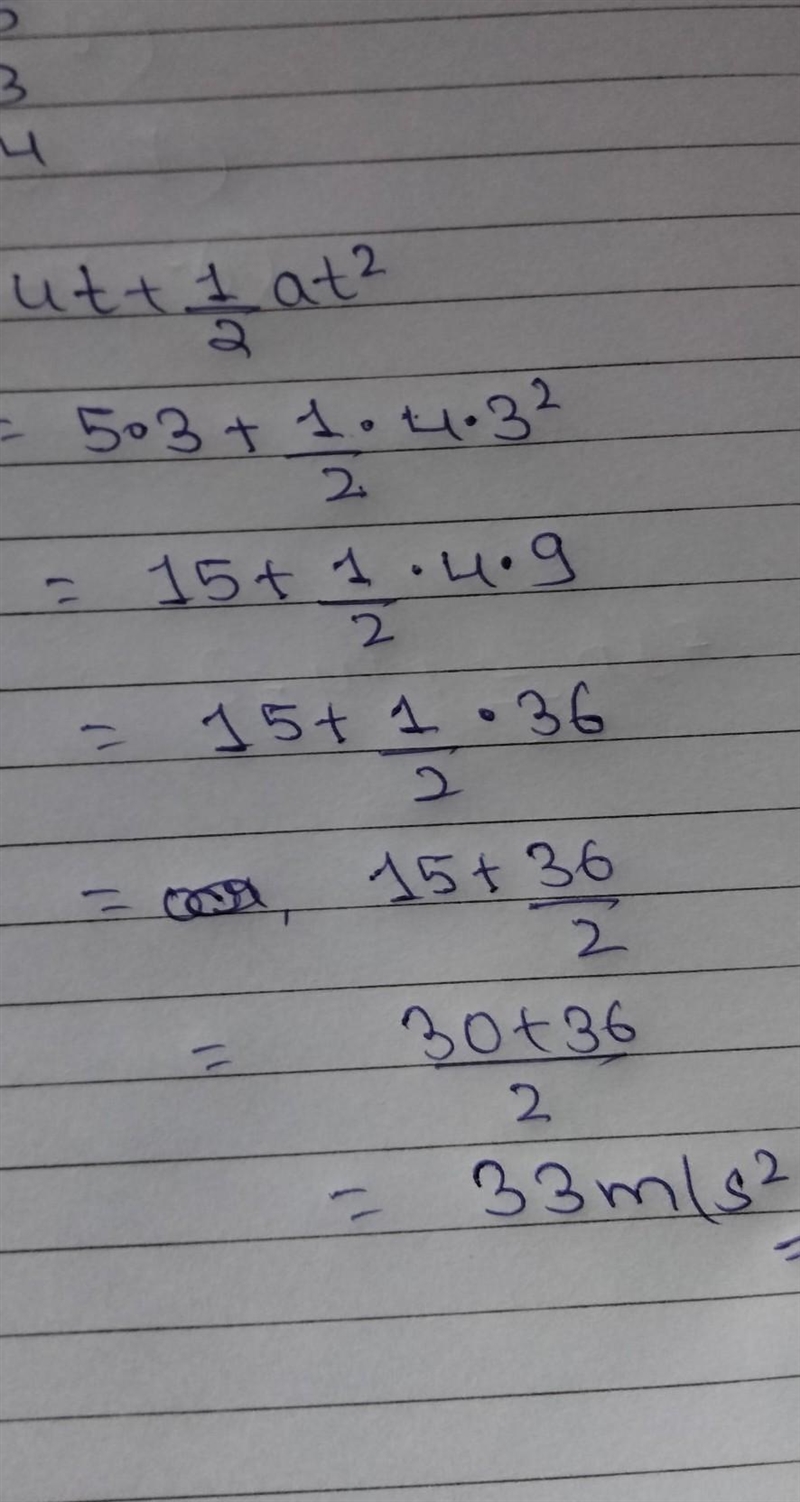 3
4
ut + 1/2 at²
= 5•3 + 1/2 • 4 • 3²
= 15 + 1/2 • 4 • 9
= 15 + 1/2 • 36
= , 15 + 36/2
= 30+36/2
= 33 m/s²
=